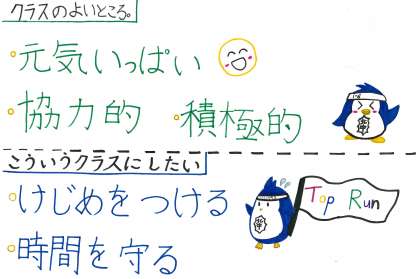 クラスのよいところ。
・元気いっぱい
・協力的 ・積極的
こういうクラスにしたい
・けじめをつける
Top Run
・時間を守る